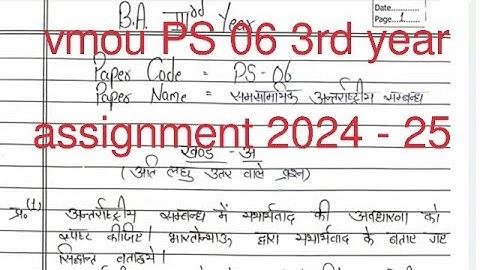 B.A. IIIrd Year
Date........
Page..1....
vmou PS 06 3rd year
Paper Code = PS-06
Paper Name = समसामयिक अन्तर्राष्ट्रीय सम्बन्ध
assignment 2024 - 25
खण्ड - अ
(अति लघु उत्तर वाले प्रश्न)
प्र०(1) अन्तर्राष्ट्रीय सम्बन्ध में यथार्थवाद की अवधारणा को
स्पष्ट कीजिए। मारगेन्थाऊ द्वारा यथार्थवाद के बताए गए
सिद्धान्त बताइये।